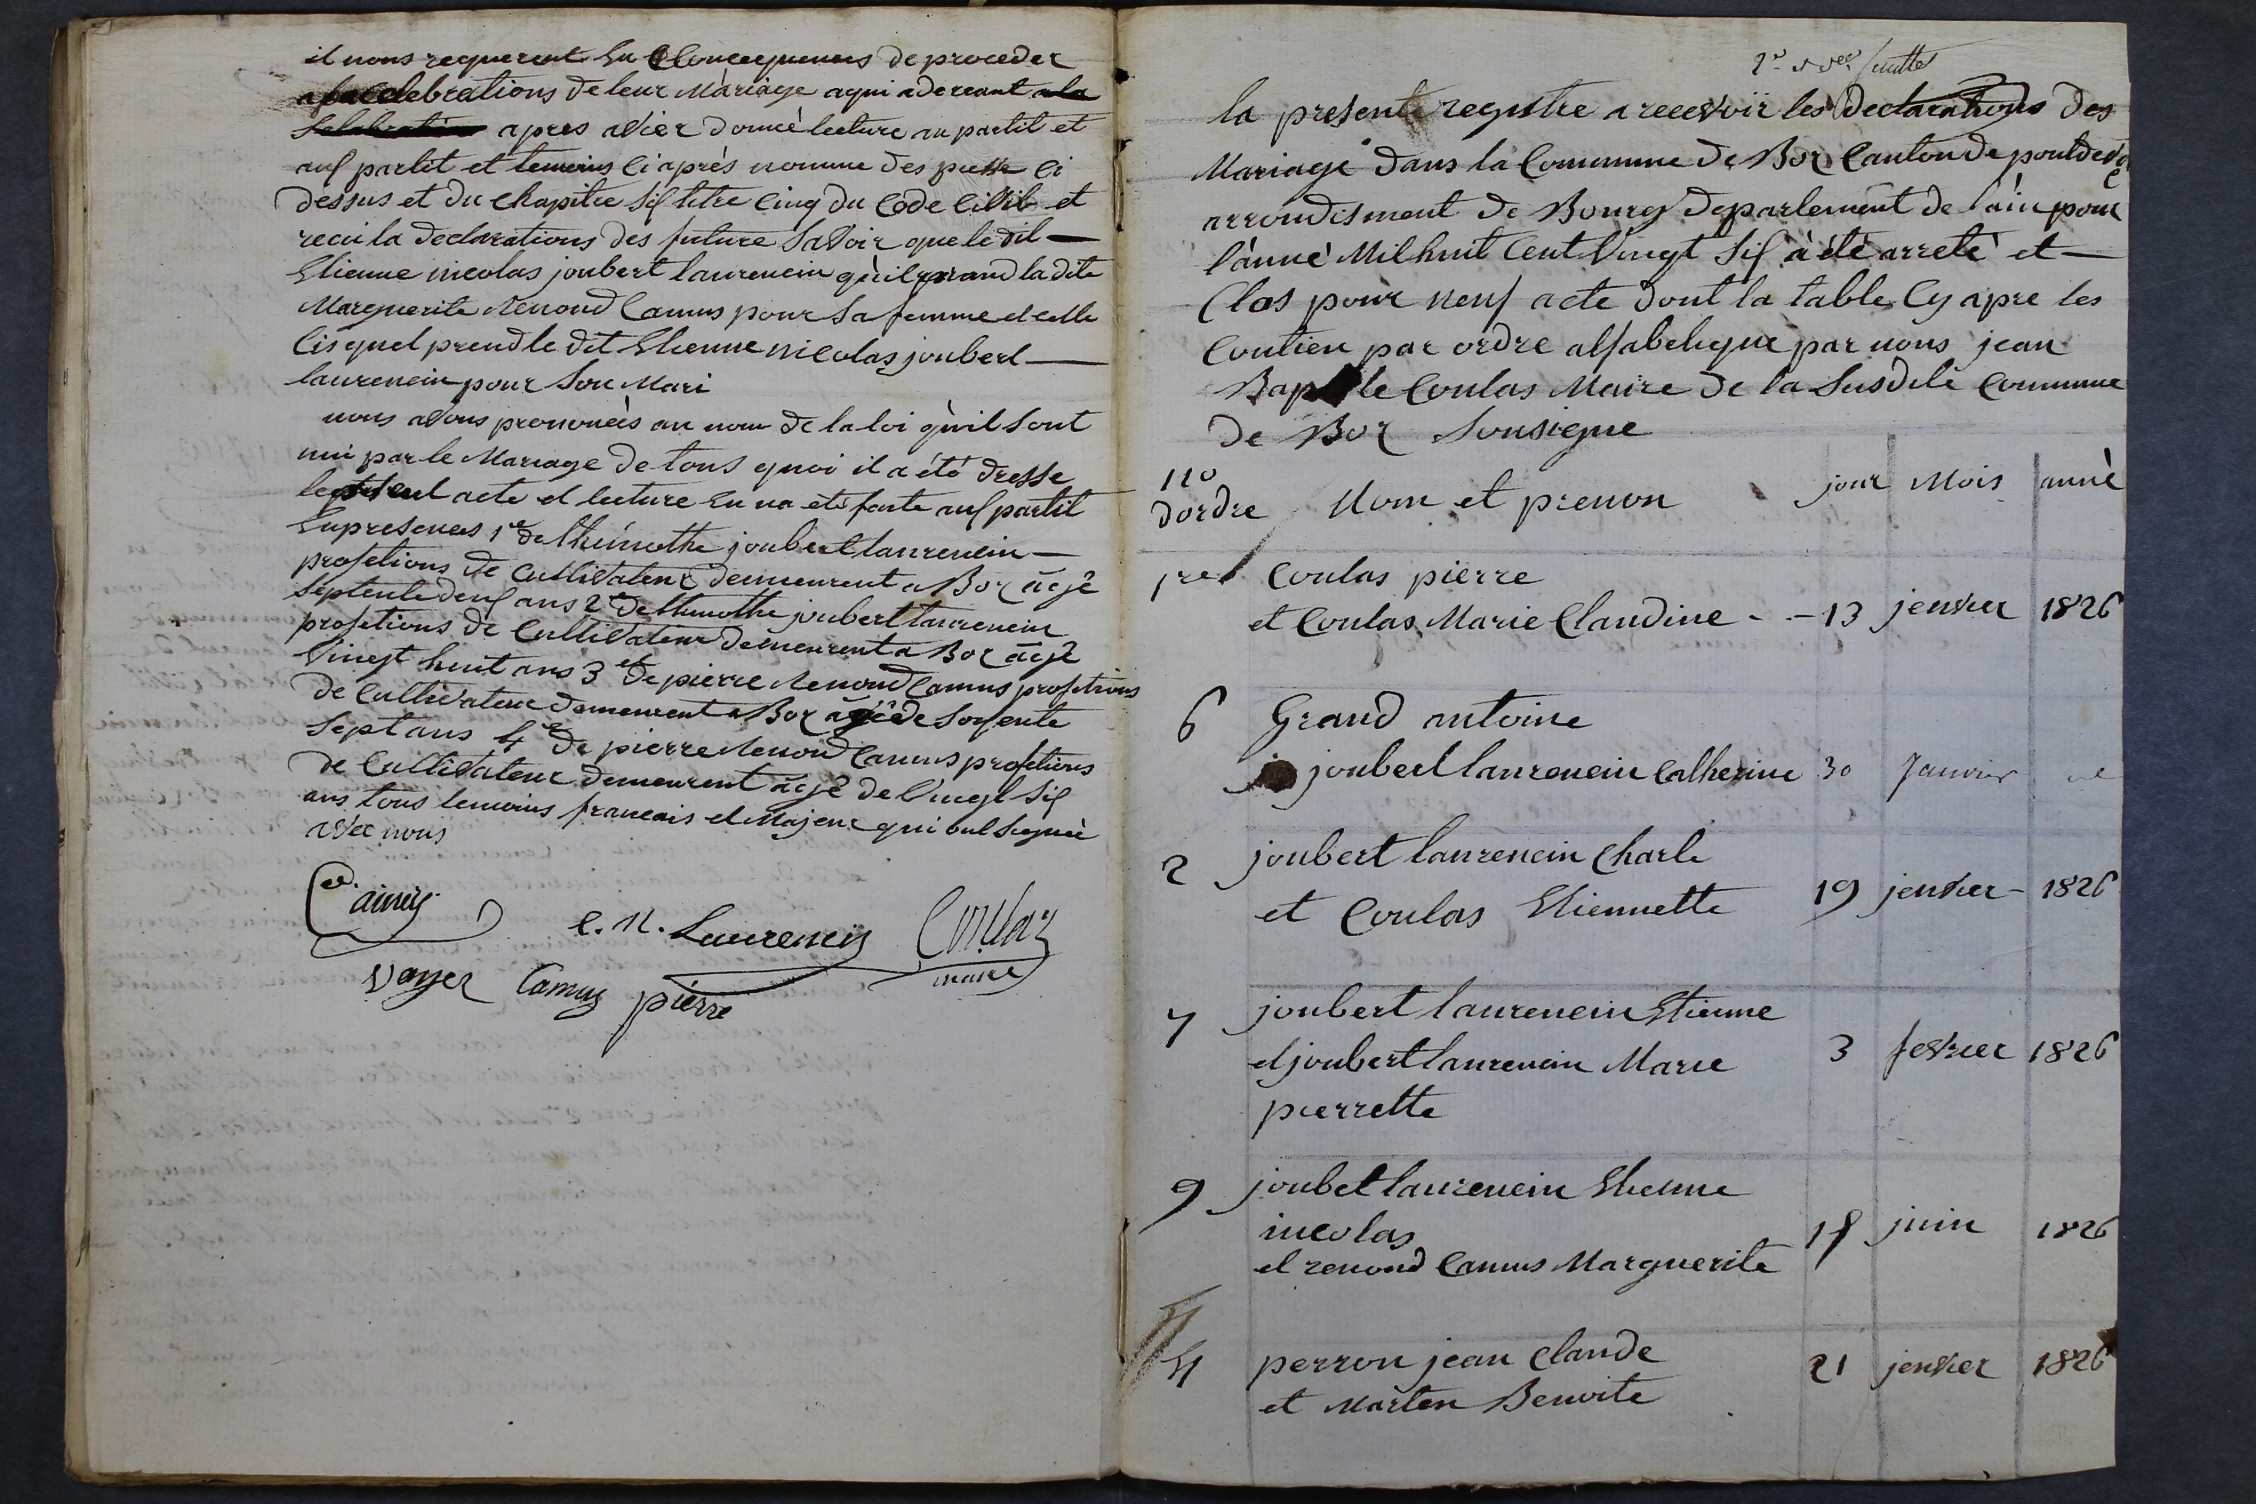 il nous requerent En Concequences de proceder
a la Celebrations de leur Màriage aqui adereant a la
Selebrations apres avier donnè lecture au partit et
aux partit et temoins Ci après nomme des piesse Ci
dessus et du Chapitre Six titre Cinq du Code Civil et
recu la declarations des future Savoir que le dit —
Etienne nicolas joubert laurencin qu'il prand la dite
Marguerite Renoud Camus pour Sa femme et celle
Cis quel prend le dit Etienne nicolas joubert —
laurencin pour Son Mari
nous avons prenoncès au nom de la loi qu'il sont
uni par le Mariage de tous quoi il a été dresse
le present acte et lecture En na eté faite aux partit
En presences 1re de thimothe joubert laurencin —
profetions de Cultivateur demeurent a Boz àgé
Septente deux ans 2e de thimothe joubert laurencin
profetions de Cultivateur demeurent a Boz àgé
Vingt huit ans 3e de pierre Renoud Camus profetions
de Cultivateur demeurent a Boz àgé de Soxente
Sept ans 4e de pierre Renoud Camus profetions
de Cultivateur demeurent àgé de Vingt Six
ans tous temoins francais et Majeur qui ont Signiè
avec nous
Camus
e. N. Laurencin Coulas
Voyer Camus pierre maire
2e et dre feuille
la presente registre a recevoir les declarations des
Mariage dans la Commune de Boz Canton de pont de V
arrondisment de Bourg departement de l'ain pour
l'anné Mil huit Cent Vingt Six à été arreté et —
Clos pour neuf acte dont la table Cy apre les
Contien par ordre alfabetique par nous jean
Baptiste Coulas Maire de la Susdite Commune
de Boz Sousigne
no
dordre Nom et prenon jour Mois annè
1re Coulas pierre
et Coulas Marie Claudine - - 13 jenvier 1826
6 Grand antoine
joubert laurencin Catherine 30 Janvier
2 joubert laurencin Charle
et Coulas Etiennette 19 jenvier - 1826
7 joubert laurencin Etienne
et joubert laurencin Marie 3 fevrier 1826
pierrette
9 joubet laurencin Etienne
nicolas 18 juin 1826
et renoud Camus Marguerite
4 perron jean Claude 21 jenvier 1826
et Marten Benoite